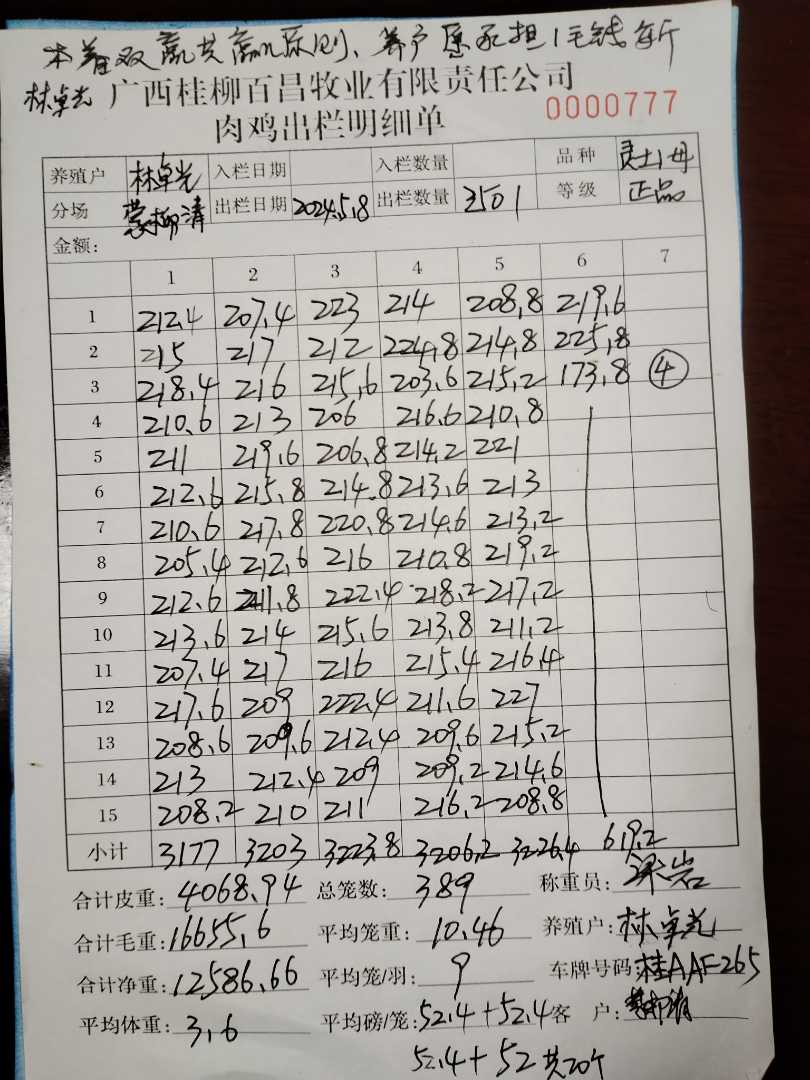 本着双赢共赢原则、养户愿承担1毛钱每斤
林卓光
广西桂柳百昌牧业有限责任公司
0000777
肉鸡出栏明细单
养殖户 林卓光 入栏日期 入栏数量 品种 灵土1母
分场 蒙柳清 出栏日期 2024.5.8 出栏数量 3501 等级 正品
金额:
1 2 3 4 5 6 7
1 212.4 207.4 223 214 208.8 219.6
2 215 217 212 224.8 214.8 225.8
3 218.4 216 215.6 203.6 215.2 173.8 ④
4 210.6 213 206 216.6 210.8
5 211 219.6 206.8 214.2 221
6 212.6 215.8 214.8 213.6 213
7 210.6 217.8 220.8 214.6 213.2
8 205.4 212.6 216 210.8 219.2
9 212.6 211.8 222.4 218.2 217.2
10 213.6 214 215.6 213.8 211.2
11 207.4 217 216 215.4 216.4
12 217.6 209 222.4 211.6 227
13 208.6 209.6 212.4 209.6 215.2
14 213 212.4 209 209.2 214.6
15 208.2 210 211 216.2 208.8
小计 3177 3203 3223.8 3206.2 3226.4 619.2
合计皮重: 4068.94 总笼数: 389 称重员: 岩
合计毛重: 16655.6 平均笼重: 10.46 养殖户: 林卓光
合计净重: 12586.66 平均笼/羽: 9 车牌号码: 桂AAF265
平均体重: 3.6 平均磅/笼: 52.4+52.4 客 户: 蒙柳清
52.4+52 共20个